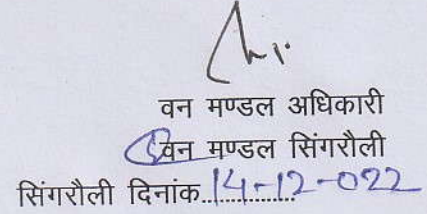 वन मण्डल अधिकारी
वन मण्डल सिंगरौली
सिंगरौली दिनांक..14-12-022